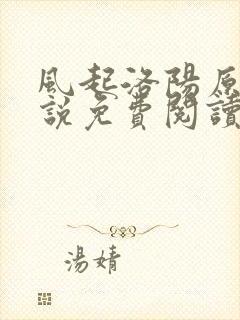 風起洛陽原
說免費閱讀
湯婧